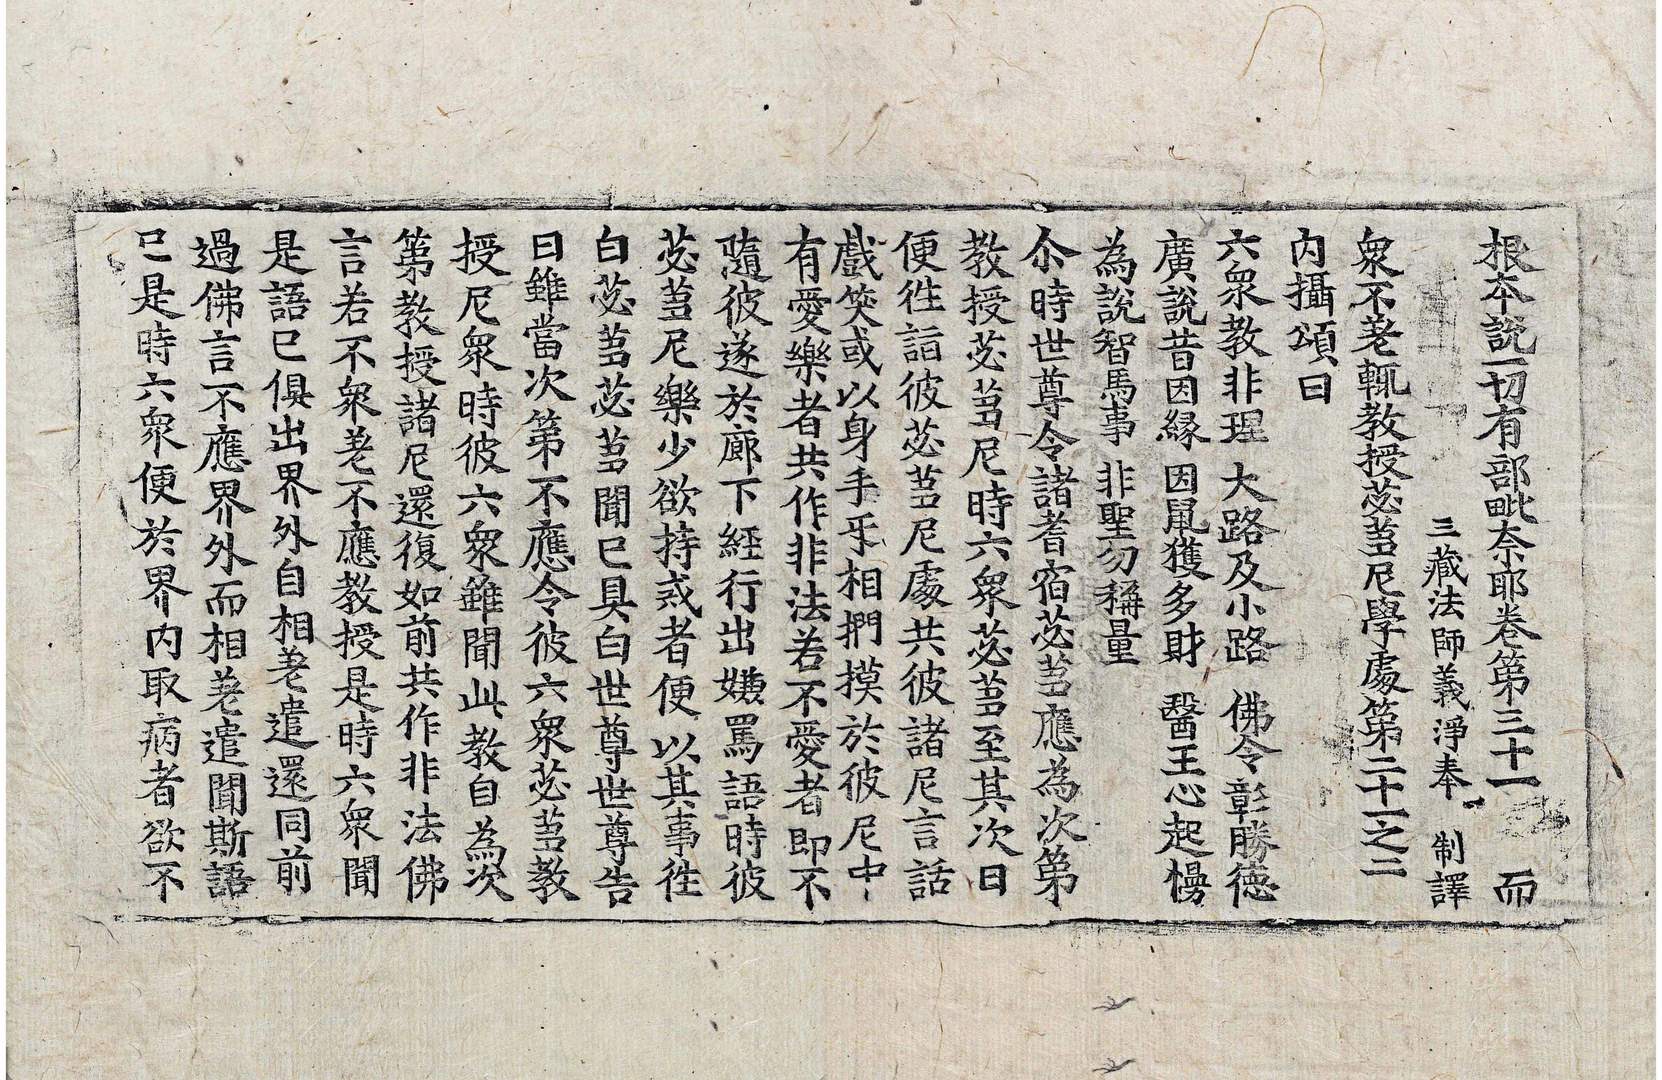 根本說一切有部毗奈耶卷第三十一 而
三藏法師義淨奉 制譯
衆不差輒教授苾芻尼學處第二十一之二
內攝頌曰
六衆教非理 大路及小路 佛令彰勝德
廣說昔因緣 因鼠獲多財 醫王心起慢
為說智馬事 非聖勿稱量
尒時世尊令諸耆宿苾芻應為次第
教授苾芻尼時六衆苾芻至其次日
便徃詣彼苾芻尼處共彼諸尼言話
戲笑或以身手乎相捫摸於彼尼中
有愛樂者共作非法若不愛者即不
隨彼遂於廊下經行出嫌罵語時彼
苾芻尼樂少欲持戒者便以其事徃
白苾芻苾芻聞已具白世尊世尊告
曰雖當次第不應令彼六衆苾芻教
授尼衆時彼六衆雖聞此教自為次
第教授諸尼還復如前共作非法佛
言若不衆差不應教授是時六衆聞
是語已俱出界外自相差遣還同前
過佛言不應界外而相差遣聞斯語
已是時六衆便於界內取病者欲不